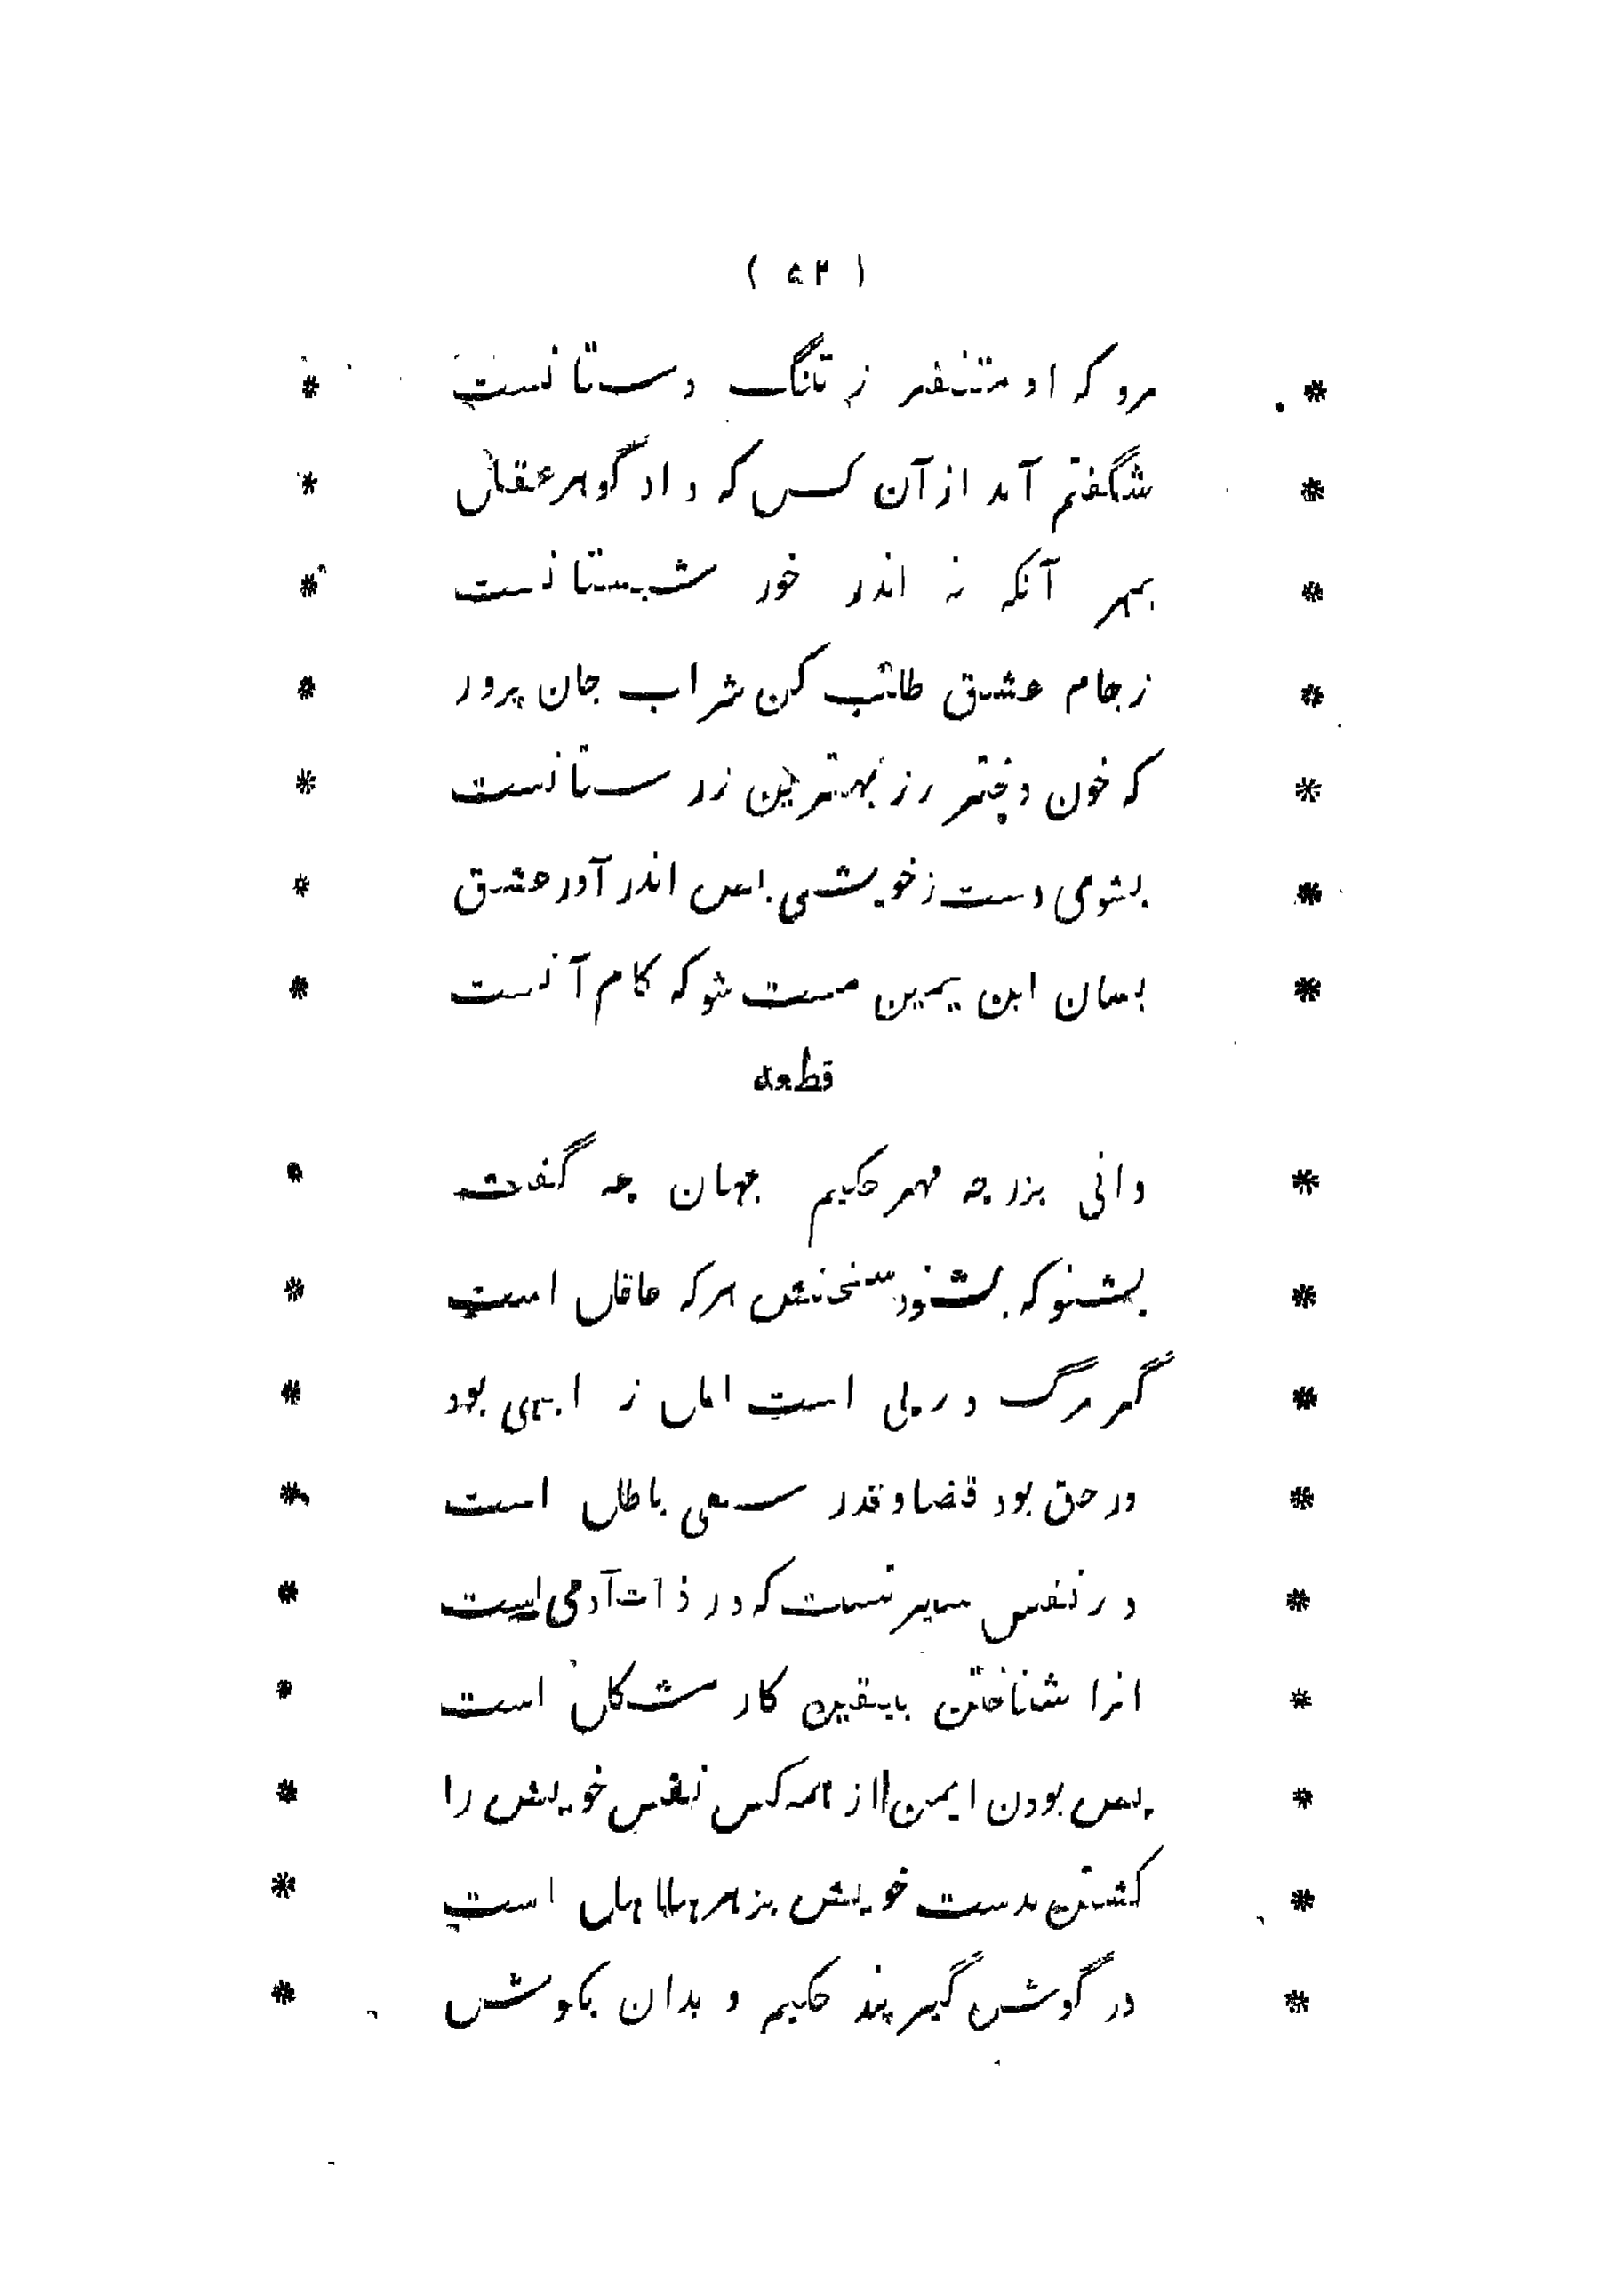 ( ۵۲ )
* مرو که او متنفر ز تنگ دستانست *
* شگفتم آمد ازآن کس که داد گوهر عقل *
* بمهر آنکه نه اندر خور شبستانست *
* ز جام عشق طلب کن شراب جان پرور *
* که خون دختر رز بهترین زر ستانست *
* بشوی دست ز خویشی پس اندر آور عشق *
* بسان ابن یمین مست شو که کام آنست *
قطعه
* دانی بزرچه مهر حکیم جهان چه گفت *
* بشنو که بشنود سخنش هر که عاقل است *
* گر مرگ در پی است امل ز ابهی بود *
* ور حق بود قضا و قدر سعی باطل است *
* در نفس سیرتست که در ذات آدمی است *
* انرا شناختن بیقین کار مشکل است *
* پس بودن ایمن از همه کس نفس خویش را *
* کشتن بدست خویش بزهر هلاهل است *
* در گوش گیر پند حکیم و بدان بکوش *